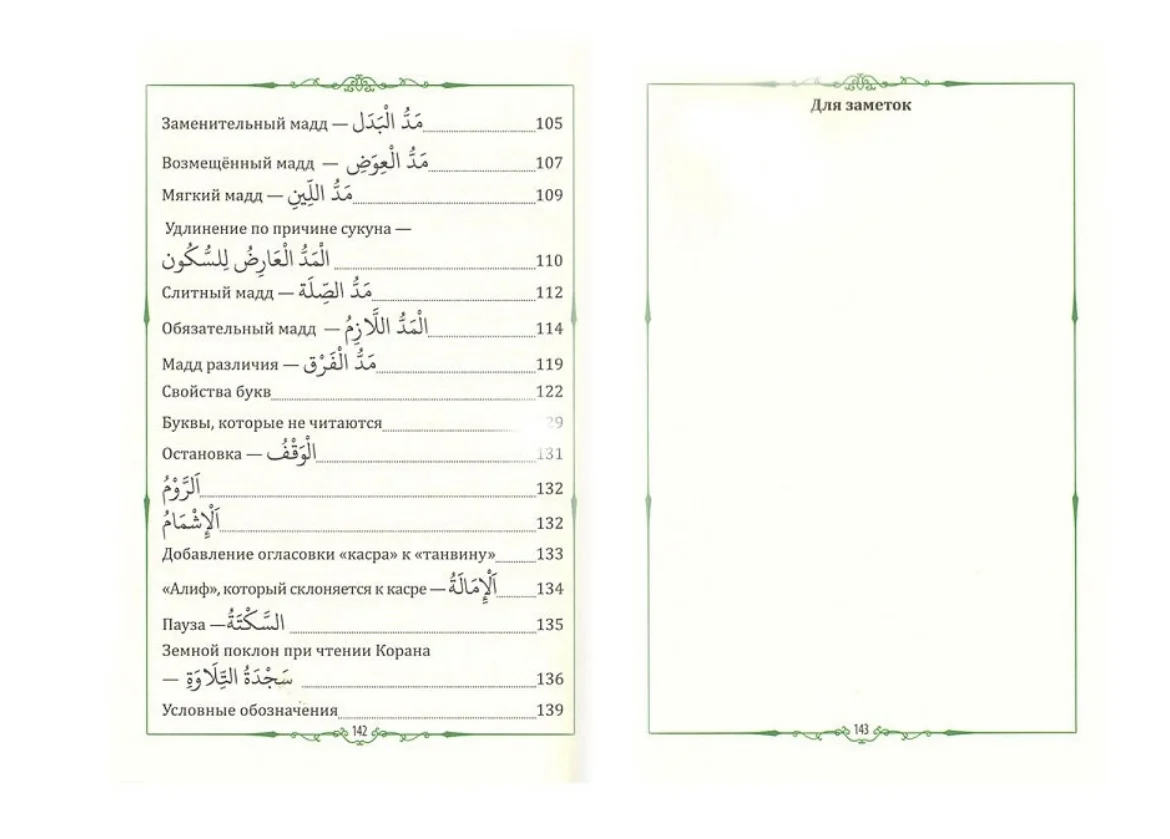 Заменительный мадд — مَدُّ الْبَدَل 105
Возмещённый мадд — مَدُّ الْعِوَضِ 107
Мягкий мадд — مَدُّ اللِّينِ 109
Удлинение по причине сукуна —
الْمَدُّ الْعَارِضُ لِلسُّكُون 110
Слитный мадд — مَدُّ الصِّلَة 112
Обязательный мадд — الْمَدُّ اللَّازِمُ 114
Мадд различия — مَدُّ الْفَرْق 119
Свойства букв 122
Буквы, которые не читаются
Остановка — الْوَقْفُ 131
اَلرَّوْمُ 132
اَلْإِشْمَامُ 132
Добавление огласовки «касра» к «танвину» 133
«Алиф», который склоняется к касре — اَلْإِمَالَةُ 134
Пауза — السَّكْتَةُ 135
Земной поклон при чтении Корана
— سَجْدَةُ التِّلَاوَةِ 136
Условные обозначения 139
142
Для заметок
143